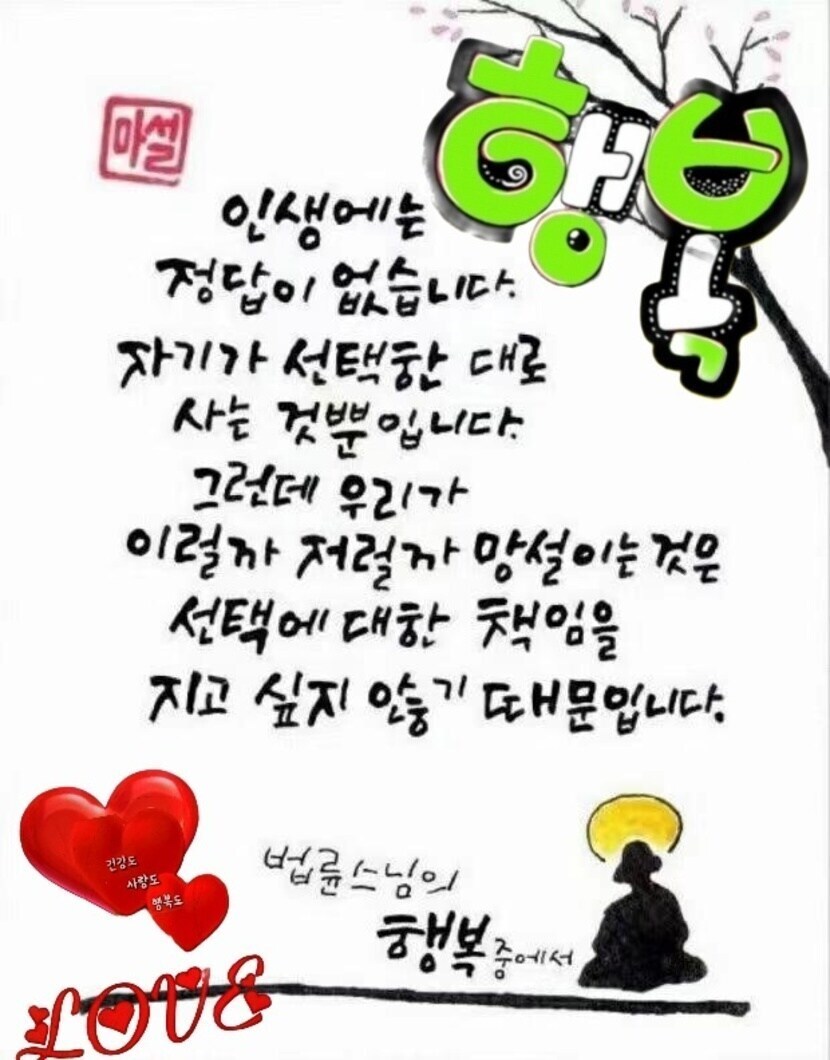 마설
행복
인생에는
정답이 없습니다.
자기가 선택한 대로
사는 것뿐입니다.
그런데 우리가
이럴까 저럴까 망설이는 것은
선택에 대한 책임을
지고 싶지 않기 때문입니다.
건강도
사랑도
행복도
법륜스님의
행복 중에서
LOVE